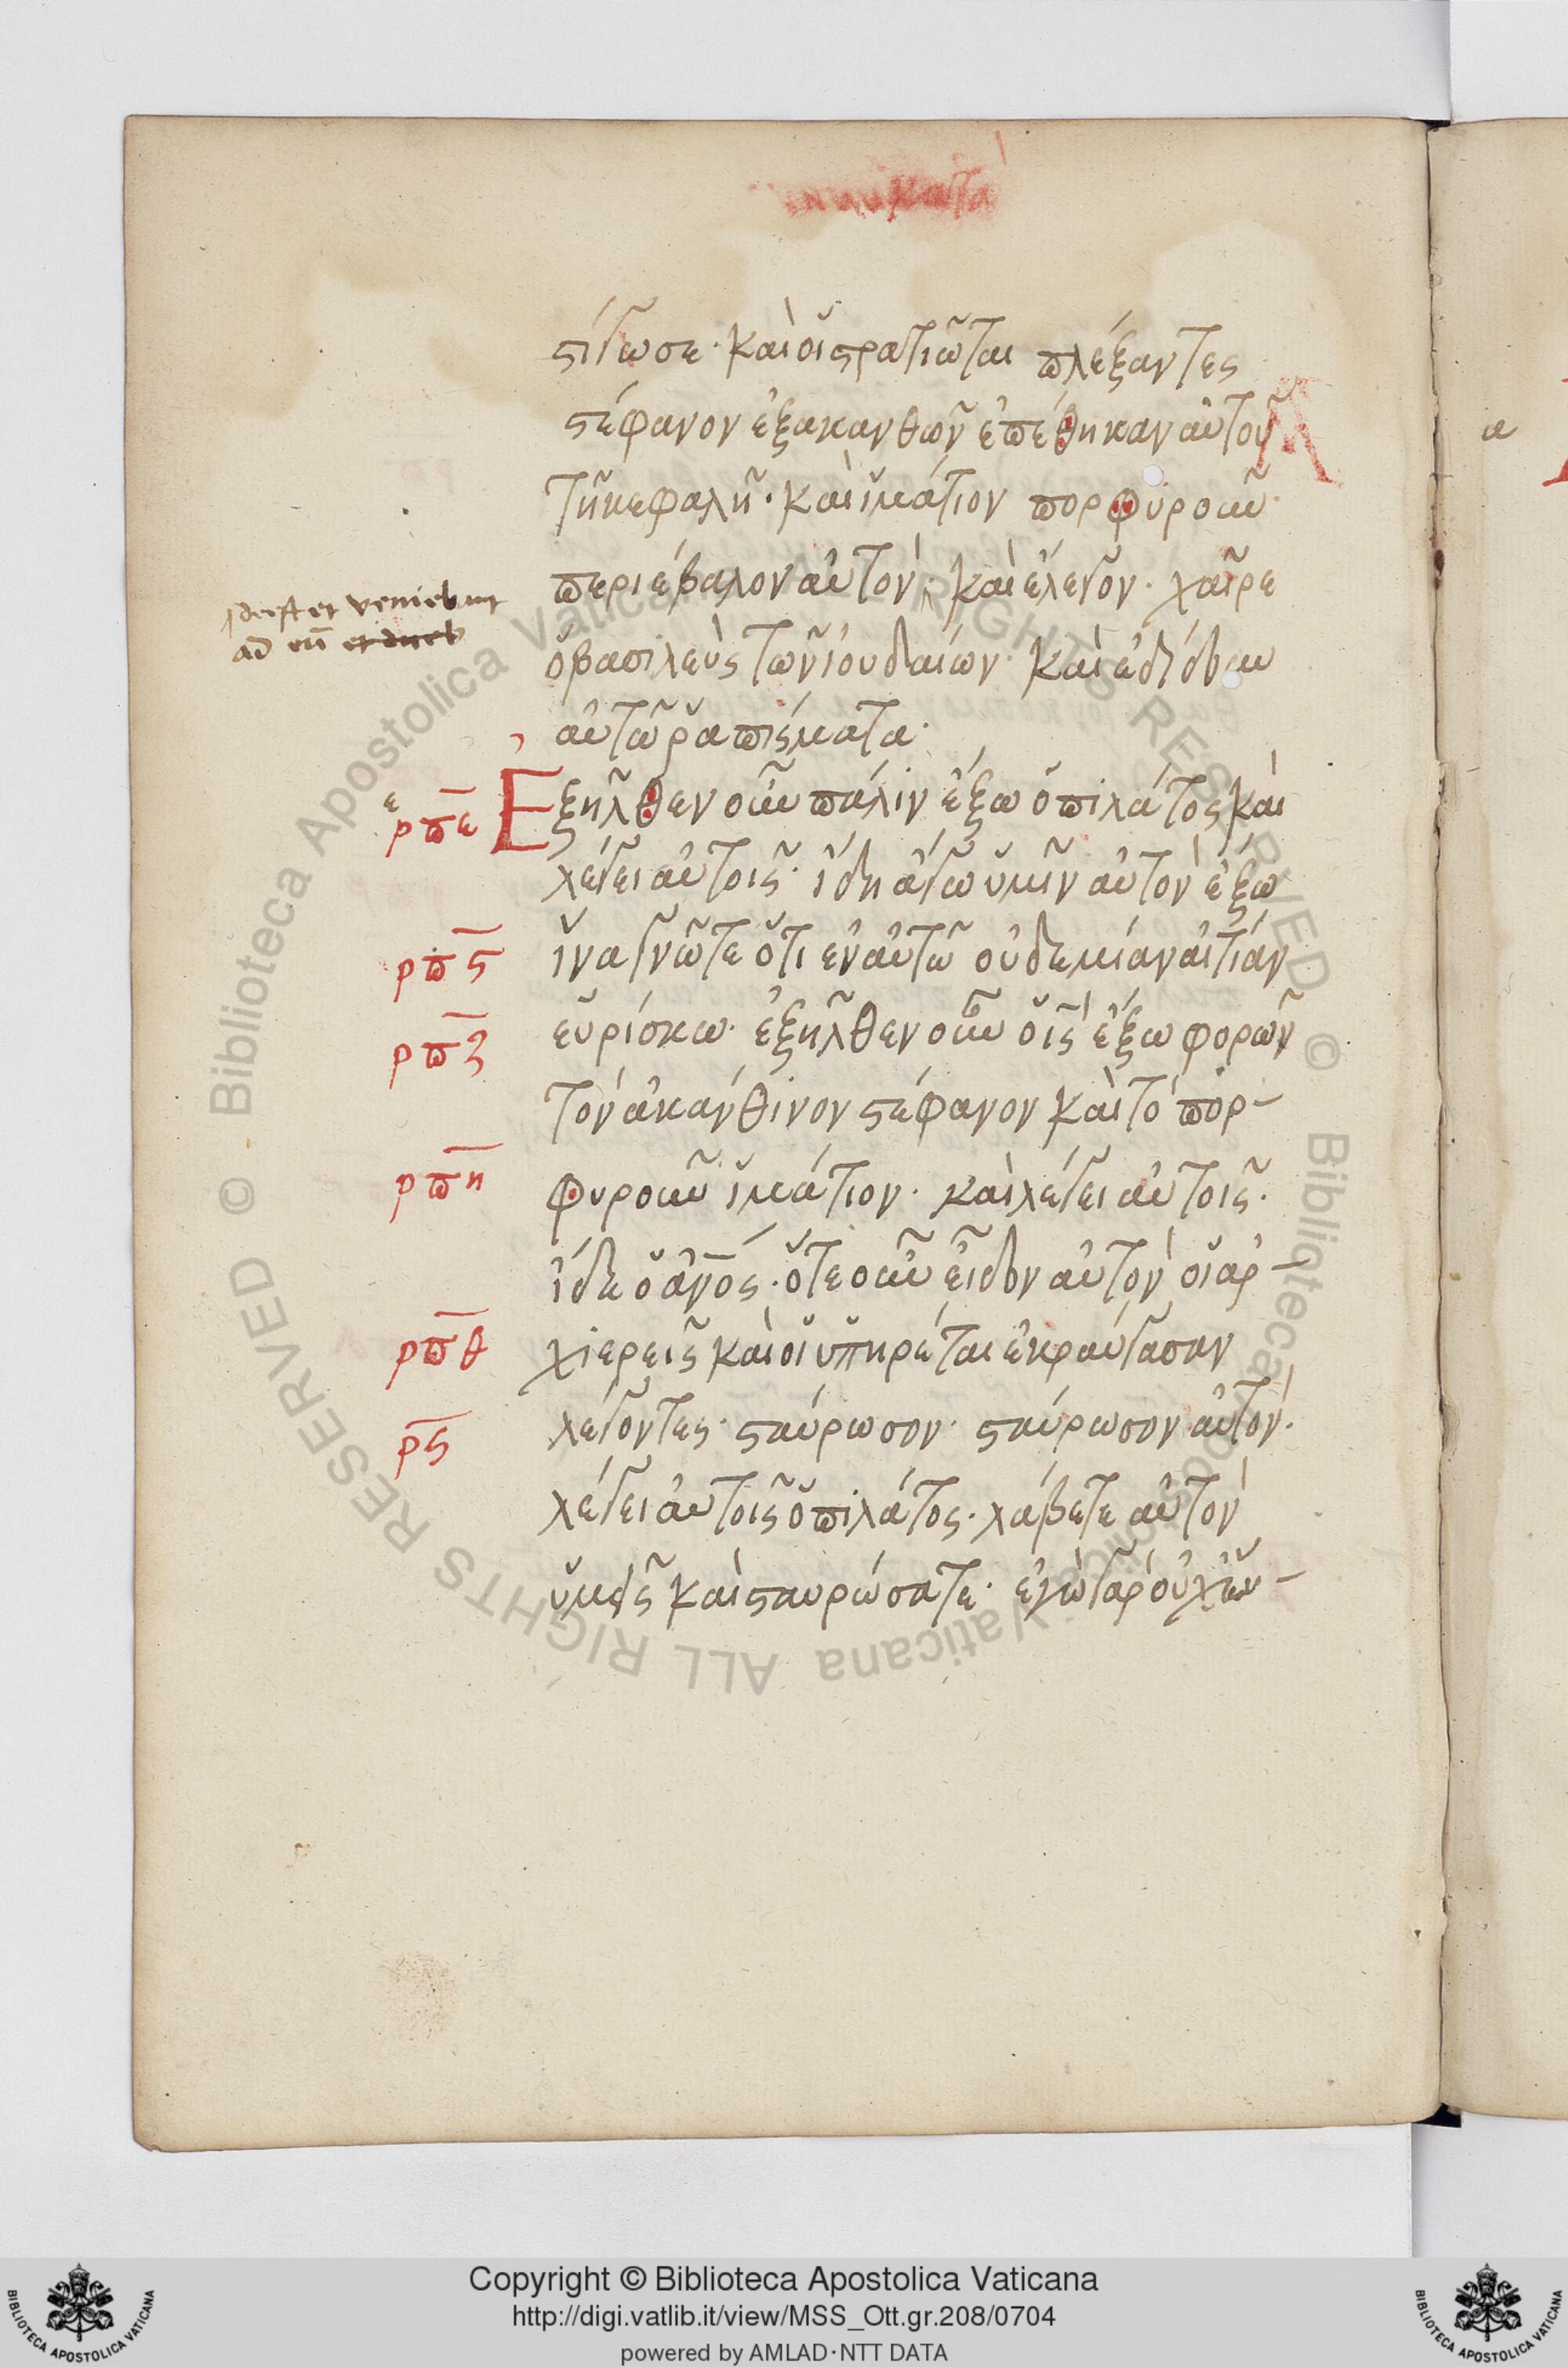 στίγωσε· καὶ οἱ στρατιῶται πλέξαντες
στέφανον ἐξ ακανθῶν ἐπέθηκαν αὐτοῦ
τῆ κεφαλῆ· καὶ ἱμάτιον πορφύροῦν
περιέβαλον αὐτὸν· καὶ ἔλεγον· χαῖρε
ὁ βασιλεὺς τῶν ἰουδαίων· καὶ ἐδίδουν
αὐτῶ ῥαπίσματα·
deest et veniebant
ad eu̅ et diceb
ε
ρπε
Ἐξῆλθεν οὖν πάλιν ἔξω ὁ πιλάτος καὶ
λέγει αὐτοῖς· ἴδη ἄγω ὑμῖν αὐτὸν ἔξω
ρπς
ἵνα γνῶτε ὅτι ἐν αὐτῶ οὐδεμίαν αἰτίαν
ρπζ
εὑρίσκω· ἐξῆλθεν οὖν ὁ ις ἔξω φορῶν
τὸν ἀκάνθινον στέφανον καὶ τὸ πορ-
ρπη
φυροῦν ἱμάτιον· καὶ λέγει αὐτοῖς·
ἴδε ὁ ἄνος· ὅτε οὖν εἶδον αὐτὸν οἱ ἀρ-
ρπθ
χιερεῖς καὶ οἱ ὑπηρέται ἐκραύγασαν
ρϛ
λέγοντες· σταύρωσον· σταύρωσον αὐτόν·
λέγει αὐτοῖς ὁ πιλάτος· λάβετε αὐτὸν
ὑμεῖς καὶ σταυρώσατε· ἐγὼ γὰρ οὐχ εὑ-
α
Copyright © Biblioteca Apostolica Vaticana
http://digi.vatlib.it/view/MSS_Ott.gr.208/0704
powered by AMLAD·NTT DATA
BIBLIOTECA APOSTOLICA VATICANA
BIBLIOTECA APOSTOLICA VATICANA
© Biblioteca Apostolica Vaticana ALL RIGHTS RESERVED © Biblioteca Apostolica Vaticana ALL RIGHTS RESERVED